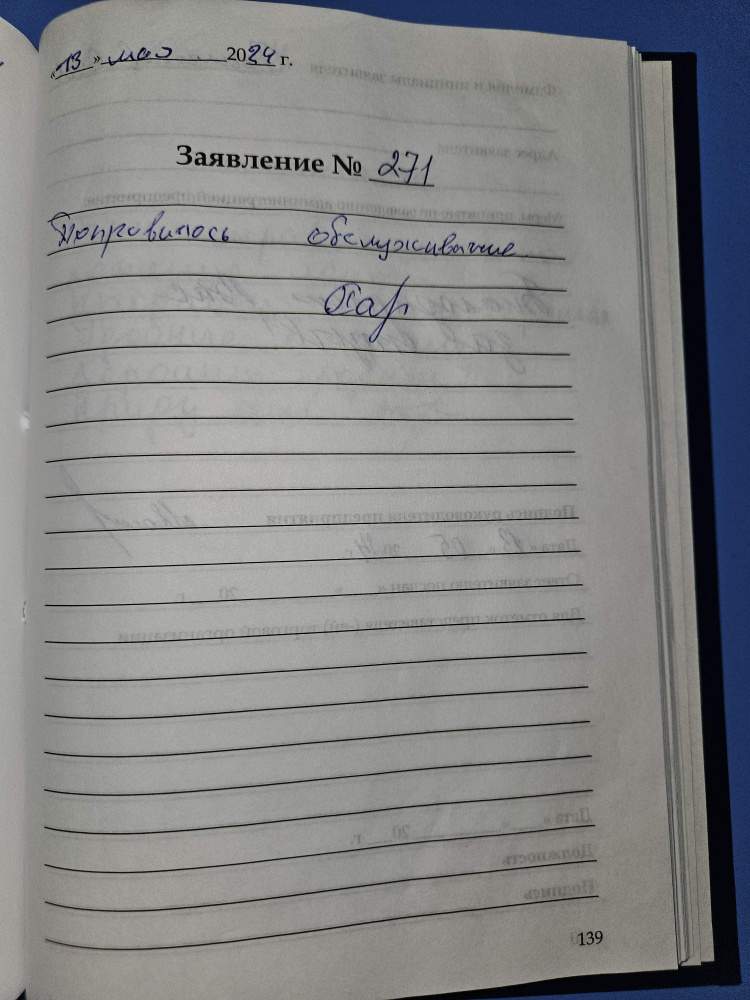 «13» мая 2024 г.
Заявление № 271
Понравилось обслуживание.
139